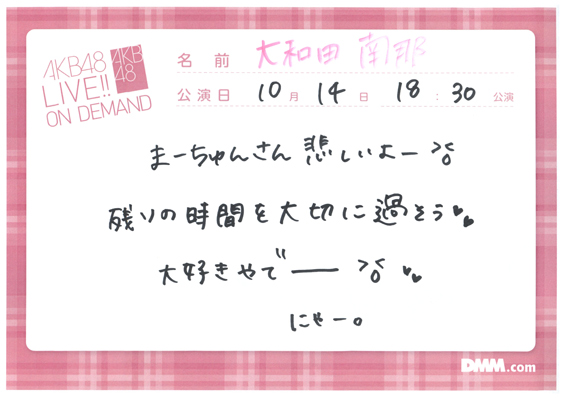 AKB48
LIVE!!
ON DEMAND
AKB
48
名前 大和田 南那
公演日 10月 14日 18:30 公演
まーちゃんさん 悲しいよー >o<
残りの時間を大切に過そう♥♥
大好きやでー >o< ♥♥
にゃー。
DMM.com